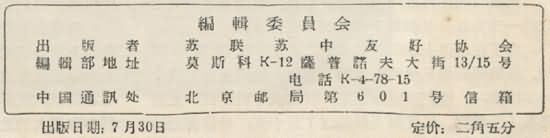 編輯委員会
出版者 苏联苏中友好协会
編輯部地址 莫斯科K-12薩普諾夫大街13/15号
电話K-4-78-15
中国通訊处 北京邮局第601号信箱
出版日期：7月30日 定价：二角五分